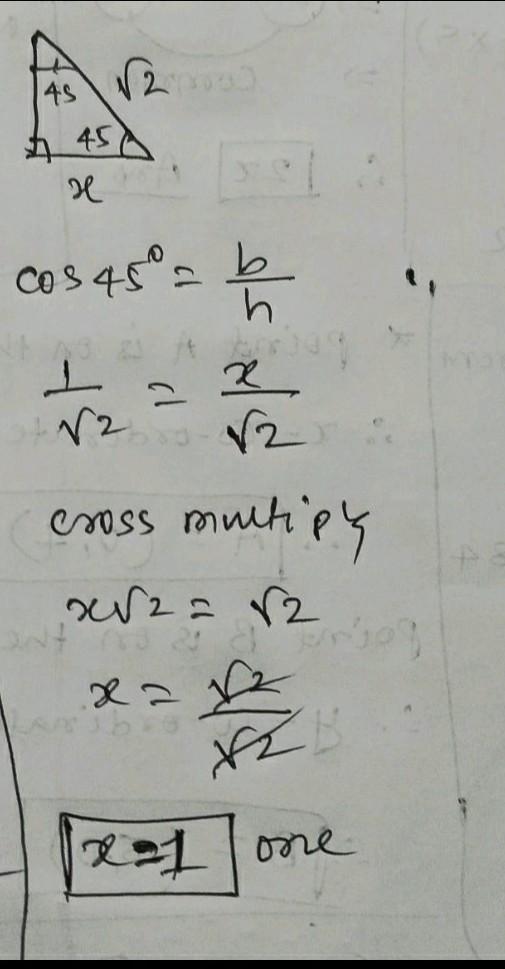 45 √2
45
x
cos 45° = b/h
1/√2 = x/√2
cross multiply
x√2 = √2
x = √2/√2
x = 1 one